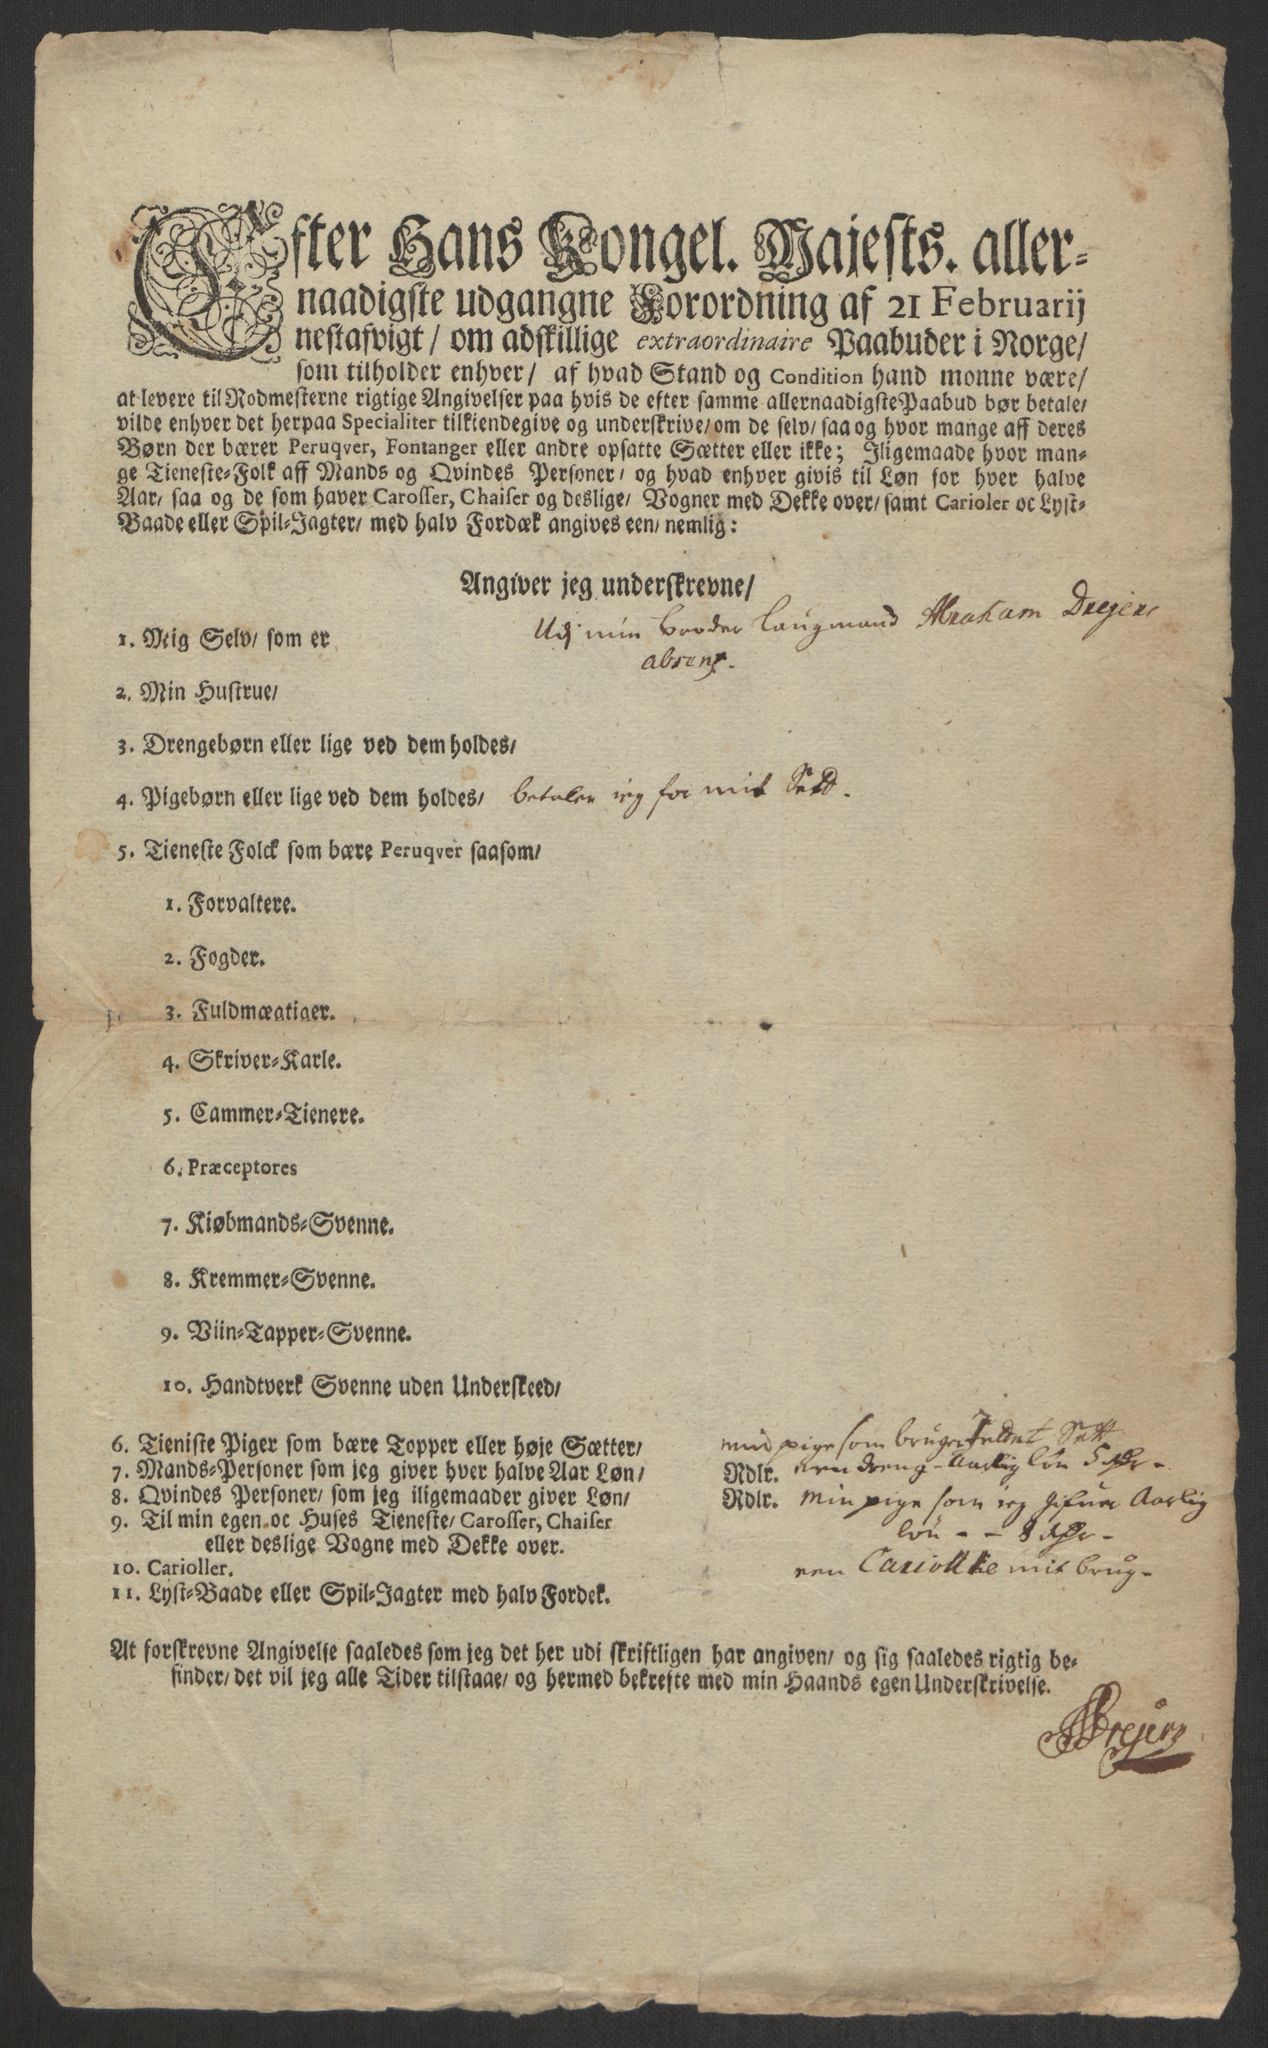 Efter Hans Kongel. Majests. aller-
naadigste udgangne Forordning af 21 Februarij
nestafvigt/ om adskillige extraordinaire Paabuder i Norge/
som tilholder enhver/ af hvad Stand og Condition hand monne være/
at levere til Rodmesterne rigtige Angivelser paa hvis de efter samme allernaadigste Paabud bør betale/
vilde enhver det herpaa Specialiter tilkiendegive og underskrive/ om de selv/ saa og hvor mange aff deres
Børn der bærer Peruqver, Fontanger eller andre opsatte Sætter eller ikke; Iligemaade hvor man-
ge Tieneste-Folk aff Mands og Qvindes Personer/ og hvad enhver givis til Løn for hver halve
Aar/ saa og de som haver Carosser, Chaiser og deslige/ Vogner med Dekke over/ samt Carioler oc Lyst-
Baade eller Spil-Jagter/ med halv Fordæk angives een/ nemlig:
Angiver jeg underskrevne/
1. Mig Selv/ som er Udj min broder Laugmand Abraham Dreijers
absens.
2. Min Hustrue/
3. Drengebørn eller lige ved dem holdes/
4. Pigebørn eller lige ved dem holdes/ betaler ieg for mit Sett.
5. Tieneste Folck som bære Peruqver saasom/
1. Forvaltere.
2. Fogder.
3. Fuldmægtiger.
4. Skriver-Karle.
5. Cammer-Tienere.
6. Præceptores
7. Kiøbmands-Svenne.
8. Kremmer-Svenne.
9. Viin-Tapper-Svenne.
10. Handtverk Svenne uden Underskeed/
6. Tieniste Piger som bære Topper eller høje Sætter/ min pige som bruger Sett
7. Mands-Personer som jeg giver hver halve Aar Løn/ Rdlr. een dreng - Aarlig løn 5
8. Qvindes Personer/ som jeg iligemaader giver Løn/ Rdlr. min pige som ieg gifuer Aarlig
løn - - 8
9. Til min egen oc Huses Tieneste/ Carosser, Chaiser
eller deslige Vogne med Dekke over.
10. Carioller. een Cariolle mit brug -
11. Lyst-Baade eller Spil-Jagter med halv Fordek.
At forskrevne Angivelse saaledes som jeg det her udi skriftligen har angiven/ og sig saaledes rigtig be-
finder/ det vil jeg alle Tider tilstaae/ og hermed bekrefte med min Haands egen Underskrivelse.
Dreijers